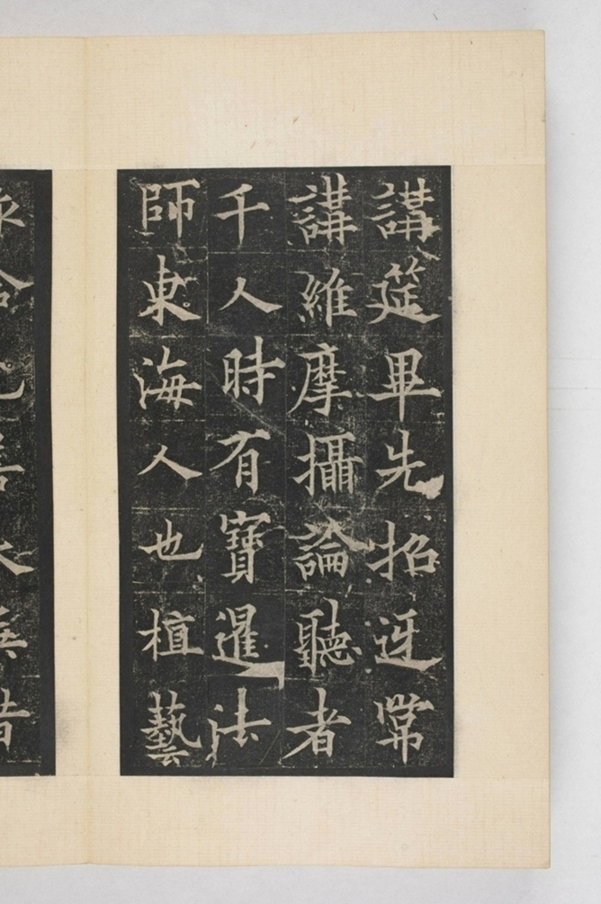 講筵畢先招迓常
講維摩攝論聽者
千人時有寶暹法
師東海人也植藝